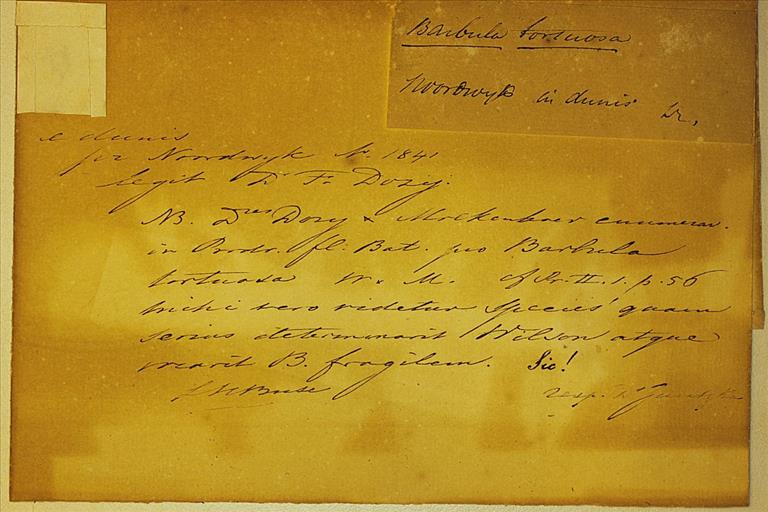 Barbula tortuosa
Noordwyk in dunis
e dunis
pr Noordwyk Nr. 1841
legit Dr F. Dozy.
NB. Dres Dozy & Molkenboer enumerav.
in Prodr. fl. Bat. pro Barbula
tortuosa W. & M. cf Pr. II. 1. p. 56
mihi vero videtur species quam
serius determinavit Wilson atque
vocavit B. fragilem. Sic!
L H Buse
resp.